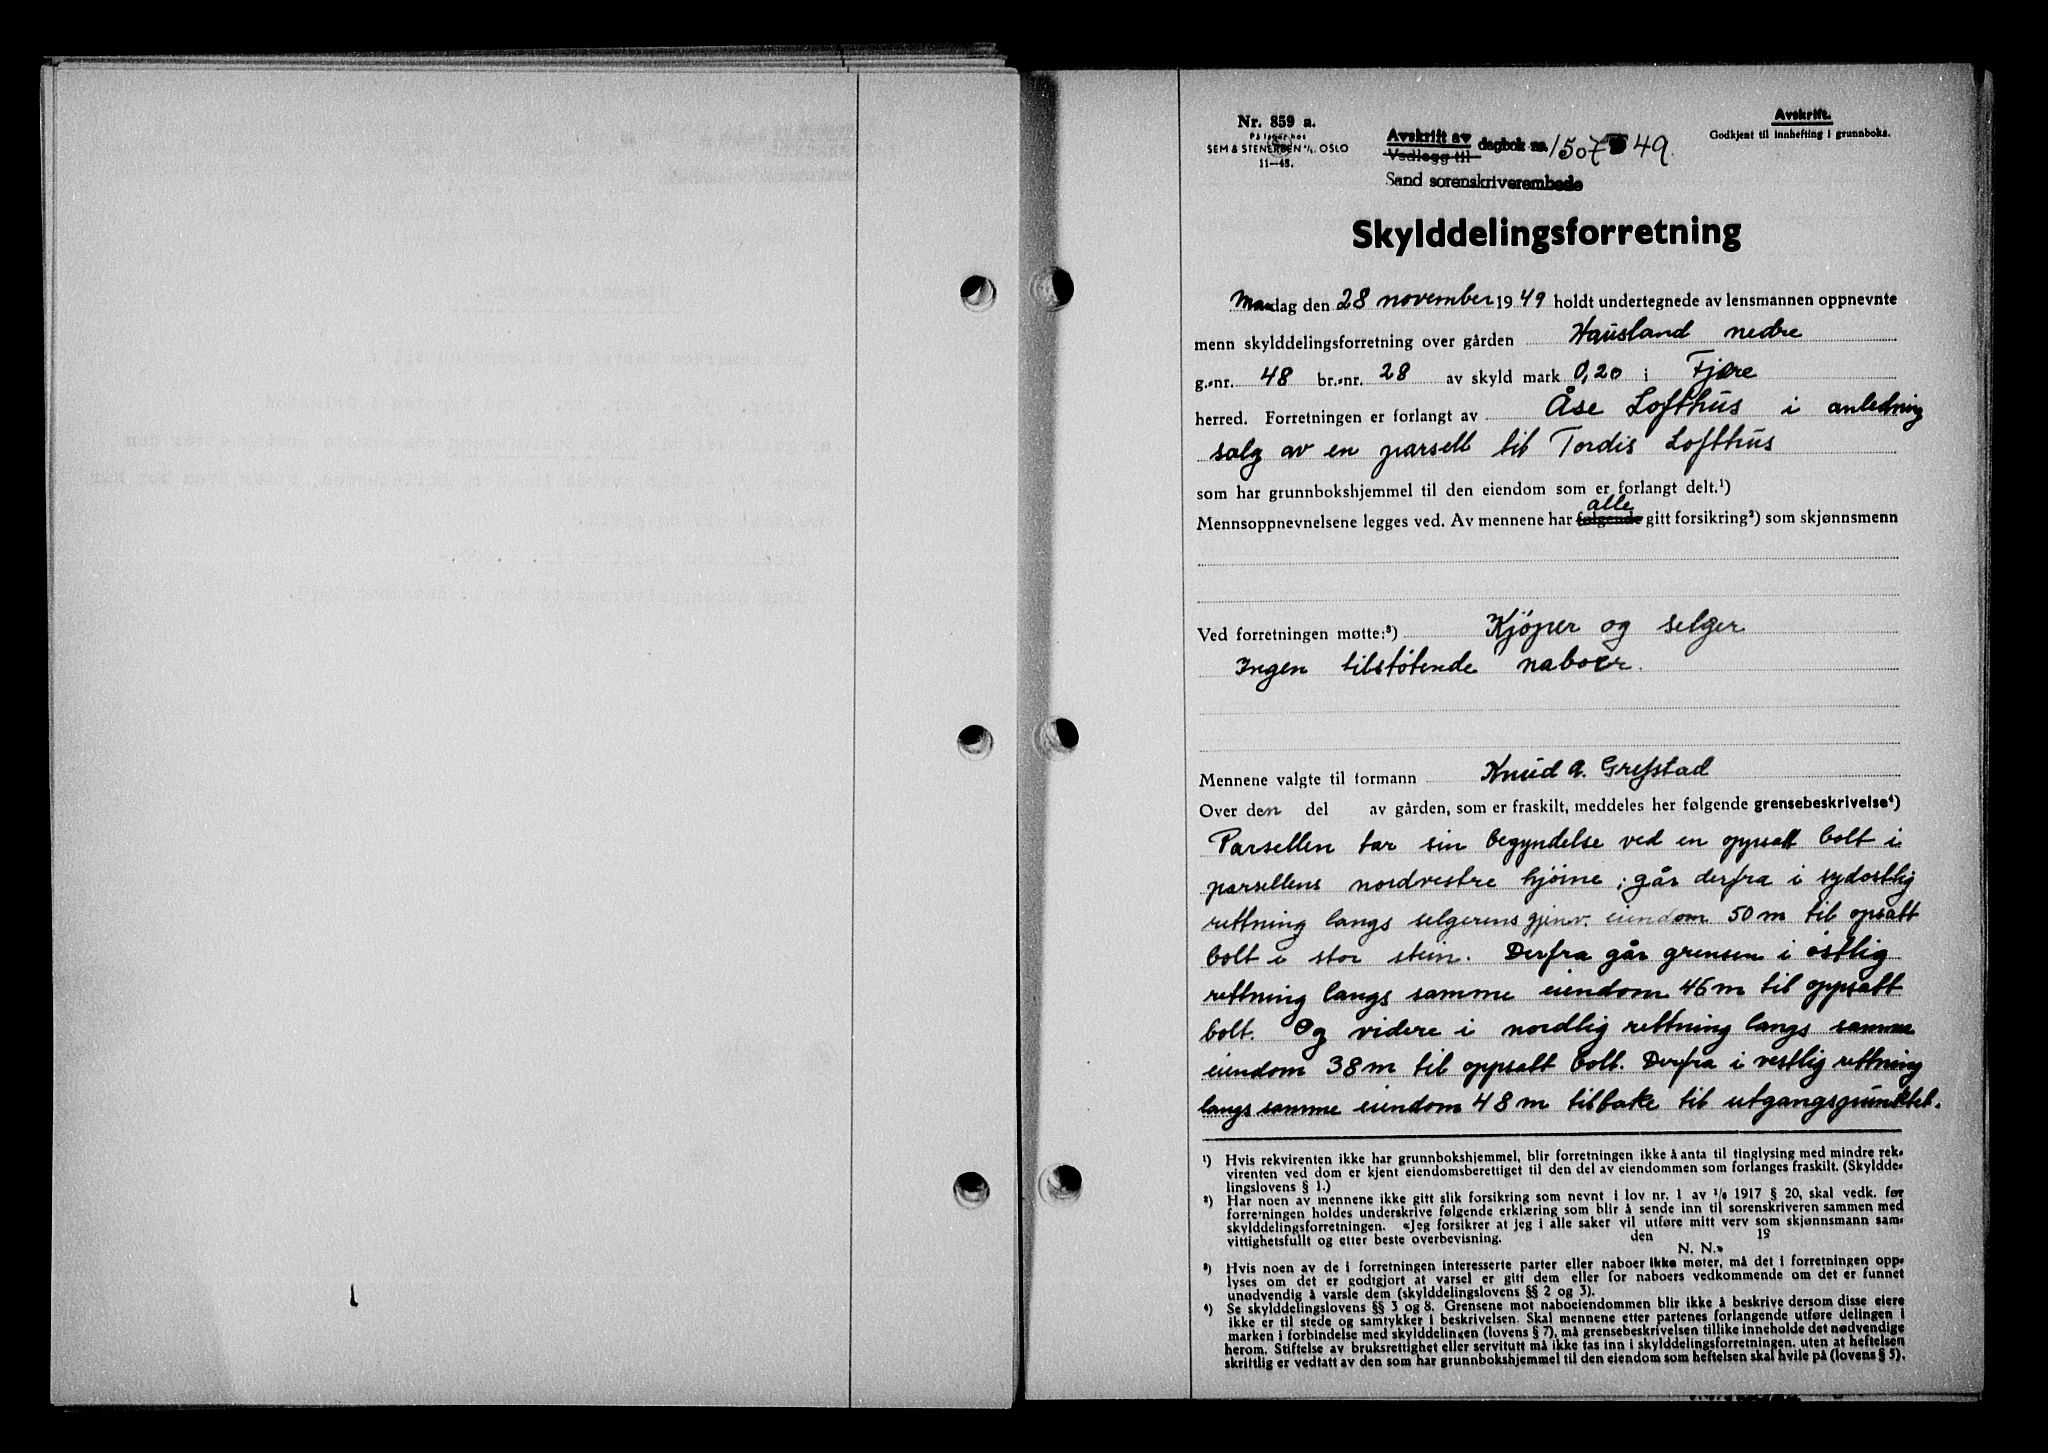 Nr. 859 a.
På lager hos
SEM & STENERSEN A/S, OSLO
11—48.
Avskrift av
Vedlegg til
dagbok nr. 1507 49.
Sand sorenskriverembede
Avskrift.
Godkjent til innhefting i grunnboka.
Skylddelingsforretning
Mandag den 28 november 1949 holdt undertegnede av lensmannen oppnevnte
menn skylddelingsforretning over gården Hausland nedre
g.-nr. 48 br.-nr. 28 av skyld mark 0,20 i Fjære
herred. Forretningen er forlangt av Åse Lofthus i anledning
salg av en parsell til Tordis Lofthus
som har grunnbokshjemmel til den eiendom som er forlangt delt.¹)
alle
Mennsoppnevnelsene legges ved. Av mennene har følgende gitt forsikring²) som skjønnsmenn
Ved forretningen møtte:³) Kjøper og selger
Ingen tilstøtende naboer.
Mennene valgte til formann Knud A. Grefstad
Over den del av gården, som er fraskilt, meddeles her følgende grensebeskrivelse⁴)
Parsellen tar sin begyndelse ved en oppsatt bolt i
parsellens nordvestre hjørne; går derfra i sydøstlig
rettning langs selgerens gjenv. eiendom 50 m til opsatt
bolt i stor stein. Derfra går grensen i østlig
rettning langs samme eiendom 46 m til oppsatt
bolt. Og videre i nordlig rettning langs samme
eiendom 38 m til oppsatt bolt. Derfra i vestlig rettning
langs samme eiendom 48 m tilbake til utgangspunktet.
¹) Hvis rekvirenten ikke har grunnbokshjemmel, blir forretningen ikke å anta til tinglysing med mindre rek-
virenten ved dom er kjent eiendomsberettiget til den del av eiendommen som forlanges fraskilt. (Skyldde-
lingslovens § 1.)
²) Har noen av mennene ikke gitt slik forsikring som nevnt i lov nr. 1 av 1/6 1917 § 20, skal vedk. før
forretningen holdes underskrive følgende erklæring som blir å sende inn til sorenskriveren sammen med
skylddelingsforretningen. «Jeg forsikrer at jeg i alle saker vil utføre mitt verv som skjønnsmann sam-
vittighetsfullt og etter beste overbevisning. den 19
N. N.»
³) Hvis noen av de i forretningen interesserte parter eller naboer ikke møter, må det i forretningen opp-
lyses om det er godtgjort at varsel er gitt dem eller for naboers vedkommende om det er funnet
unødvendig å varsle dem (skylddelingslovens §§ 2 og 3).
⁴) Se skylddelingslovens §§ 3 og 8. Grensene mot naboeiendommen blir ikke å beskrive dersom disse eiere
ikke er til stede og samtykker i beskrivelsen. Skal mennene etter partenes forlangende utføre delingen i
marken i forbindelse med skylddelingen (lovens § 7), må grensebeskrivelsen tillike inneholde det nødvendige
herom. Stiftelse av bruksrettighet eller servitutt må ikke tas inn i skylddelingsforretningen, uten at heftelsen
skriftlig er vedtatt av den som har grunnbokshjemmel til den eiendom som heftelsen skal hvile på (lovens § 5).